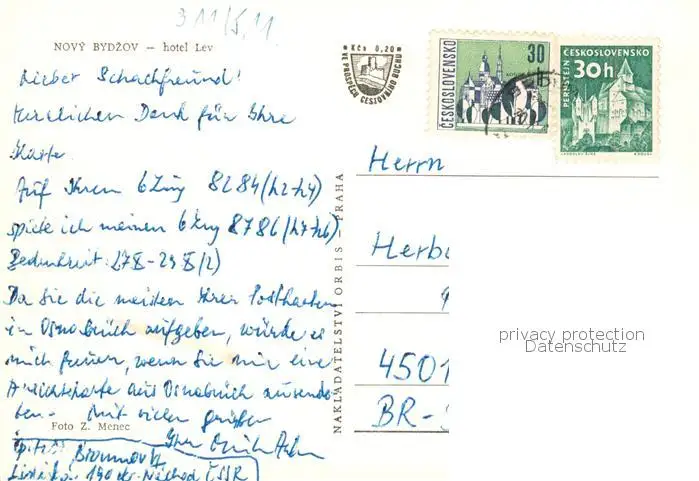 311/5,11
NOVÝ BYDŽOV – hotel Lev
Lieber Schachfreund!
Herzlichen Dank für Ihre
Karte.
Auf Ihren 6 Zug 8284 (h2-h4)
spiele ich meinen 6 Zug 8786 (h7-h6)
Bedenkzeit: 27.8 - 29.8 /2)
Da Sie die meisten Ihrer Postkarten
in Osnabrück aufgeben, würde es
mich freuen, wenn Sie mir eine
Ansichtskarte aus Osnabrück zusende-
ten. Mit vielen grüßen
Foto Z. Menec
Ihr
190 okr. Náchod ČSSR
Kčs 0,20
VE PROSPĚCH CESTOVNÍHO RUCHU
NAKLADATELSTVÍ ORBIS – PRAHA
ČESKOSLOVENSKO
30
ČESKOSLOVENSKO
30h
PERNŠTEJN
Herrn
Herb
4501
BR-
privacy protection
Datenschutz